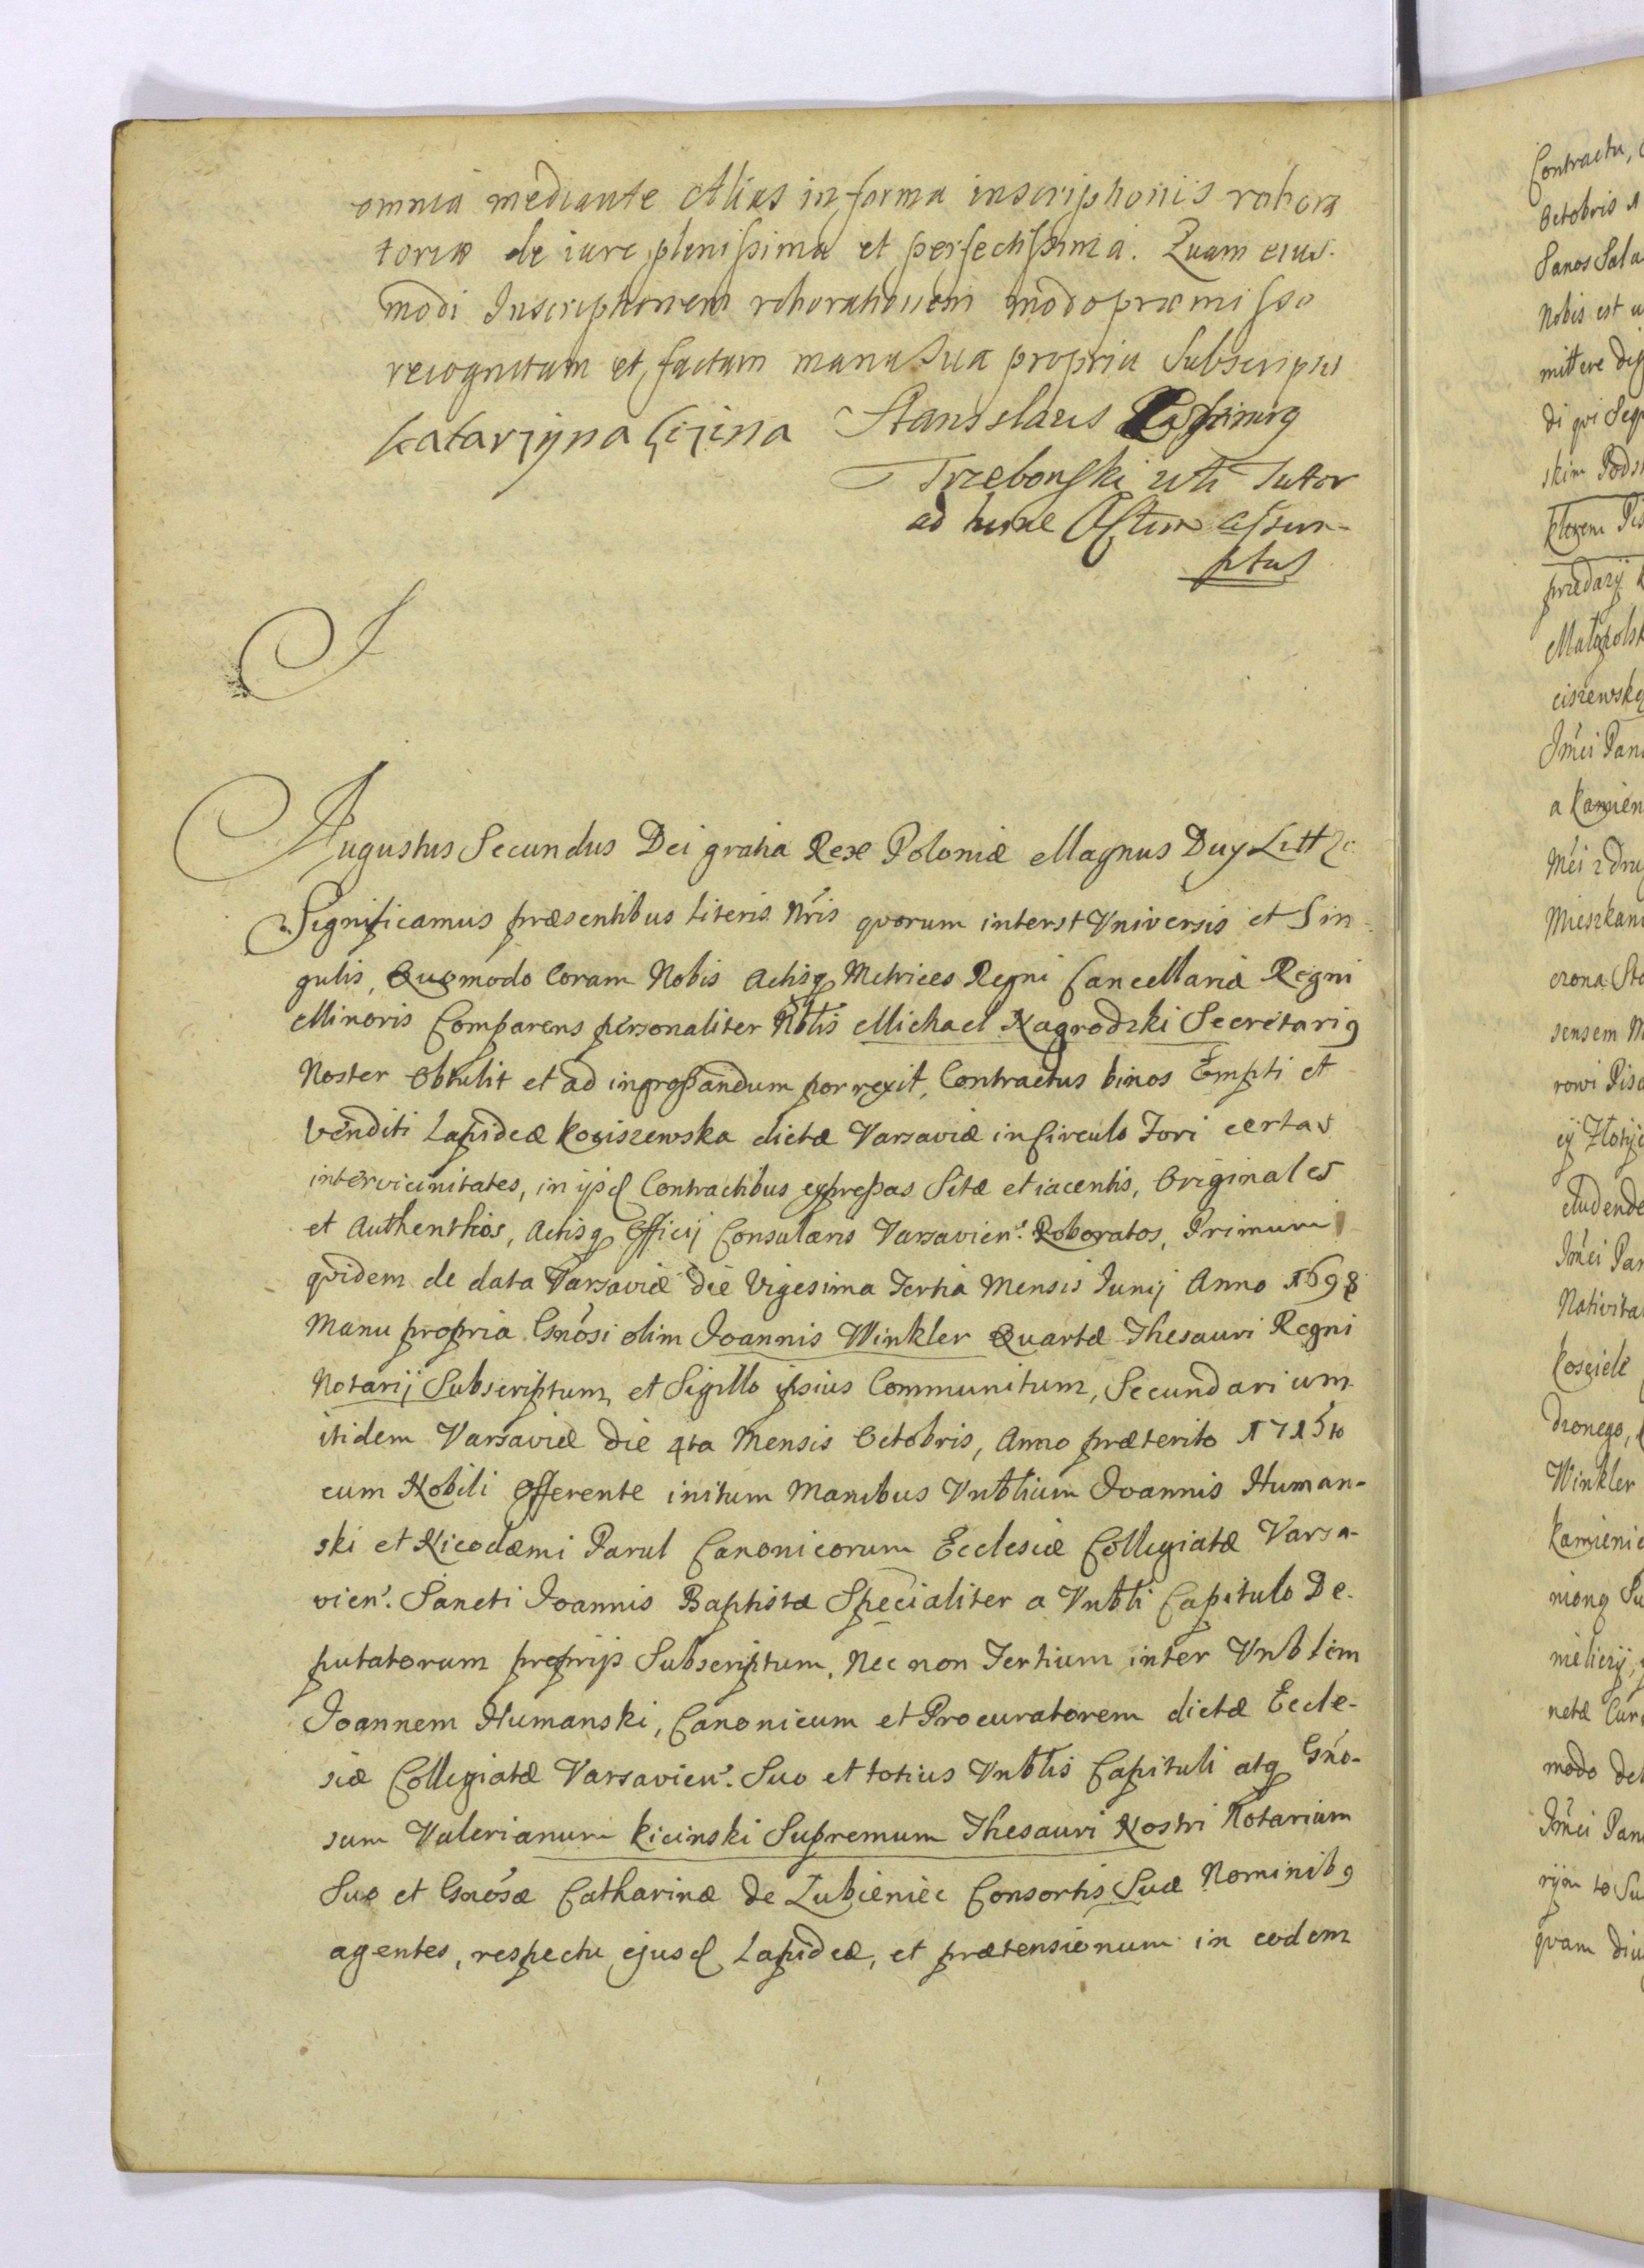 omnia mediante Alias in forma inscriptionis robora
toriæ de iure plenissima et perfectissima. Quam eius
modi Inscriptionem roborationem modo præmisso
recognitam et factam manu Sua propria Subscripsit
Katarzyna
Stanislaus
Trzebonski uti Tutor
ad hunc Actum assum-
ptus
Augustus Secundus Dei gratia Rex Poloniæ Magnus Dux Litt &c
Significamus præsentibus literis Nris quorum interst Vniversis et Sin-
gulis, Quomodo Coram Nobis Actisq Metrices Regni Cancellariæ Regni
Minoris Comparens personaliter Nblis Michael Nagrodzki Secretarig
Noster obtulit et ad ingrossandum porrexit, Contractus binos Empti et
Venditi Lapideæ Kogiszewska dictæ Varsaviæ in Circulo Fori certas
inter vicinitates, in ijsd Contractibus expressas Sitæ et iacentis, Originales
et Authenthios, Actisq Officij Consularis Varsavien. Roboratos, Primum
quidem de data Varsaviæ die Vigesima Tertia Mensis Junij Anno 1698
Manu propria Gnosi olim Joannis Winkler Quartæ Thesauri Regni
Notarij Subscriptum, et Sigillo ipsius Communitum, Secundarium
itidem Varsaviæ die 4ta Mensis Octobris, Anno præterito 1715to
cum Nobili Offerente initum Manibus Vnblium Joannis Human-
ski et Nicodæmi Parul Canonicorum Ecclesiæ Collegiatæ Varsa-
vien. Sancti Joannis Baptistæ Specialiter a Vnbli Capitulo De-
putatorum proprijs Subscriptum, Nec non Tertium inter Vnblem
Joannem Humanski, Canonicum et Procuratorem dictæ Eccle-
siæ Collegiatæ Varsavien. Suo et totius Vnblis Capituli atq Gno-
sum Valerianum Kicinski Supremum Thesauri Nostri Notarium
Suo et Gnosæ Catharinæ de Lubieniec Consortis Suæ Nominibg
agentes, respectu ejusd Lapideæ, et prætensionum in eodem
Contractu,
Octobris
Sanos Sala
Nobis est
mittere
di qvi
skim
przedazy
ciszewsky
Jmci Pan
a Kamien
Mieszkan
sensem
rowi Pisa
Jmci Pan
Nativita
Koscielt
Winkler
Kamieni
modo
Jmci Pan
quam diu